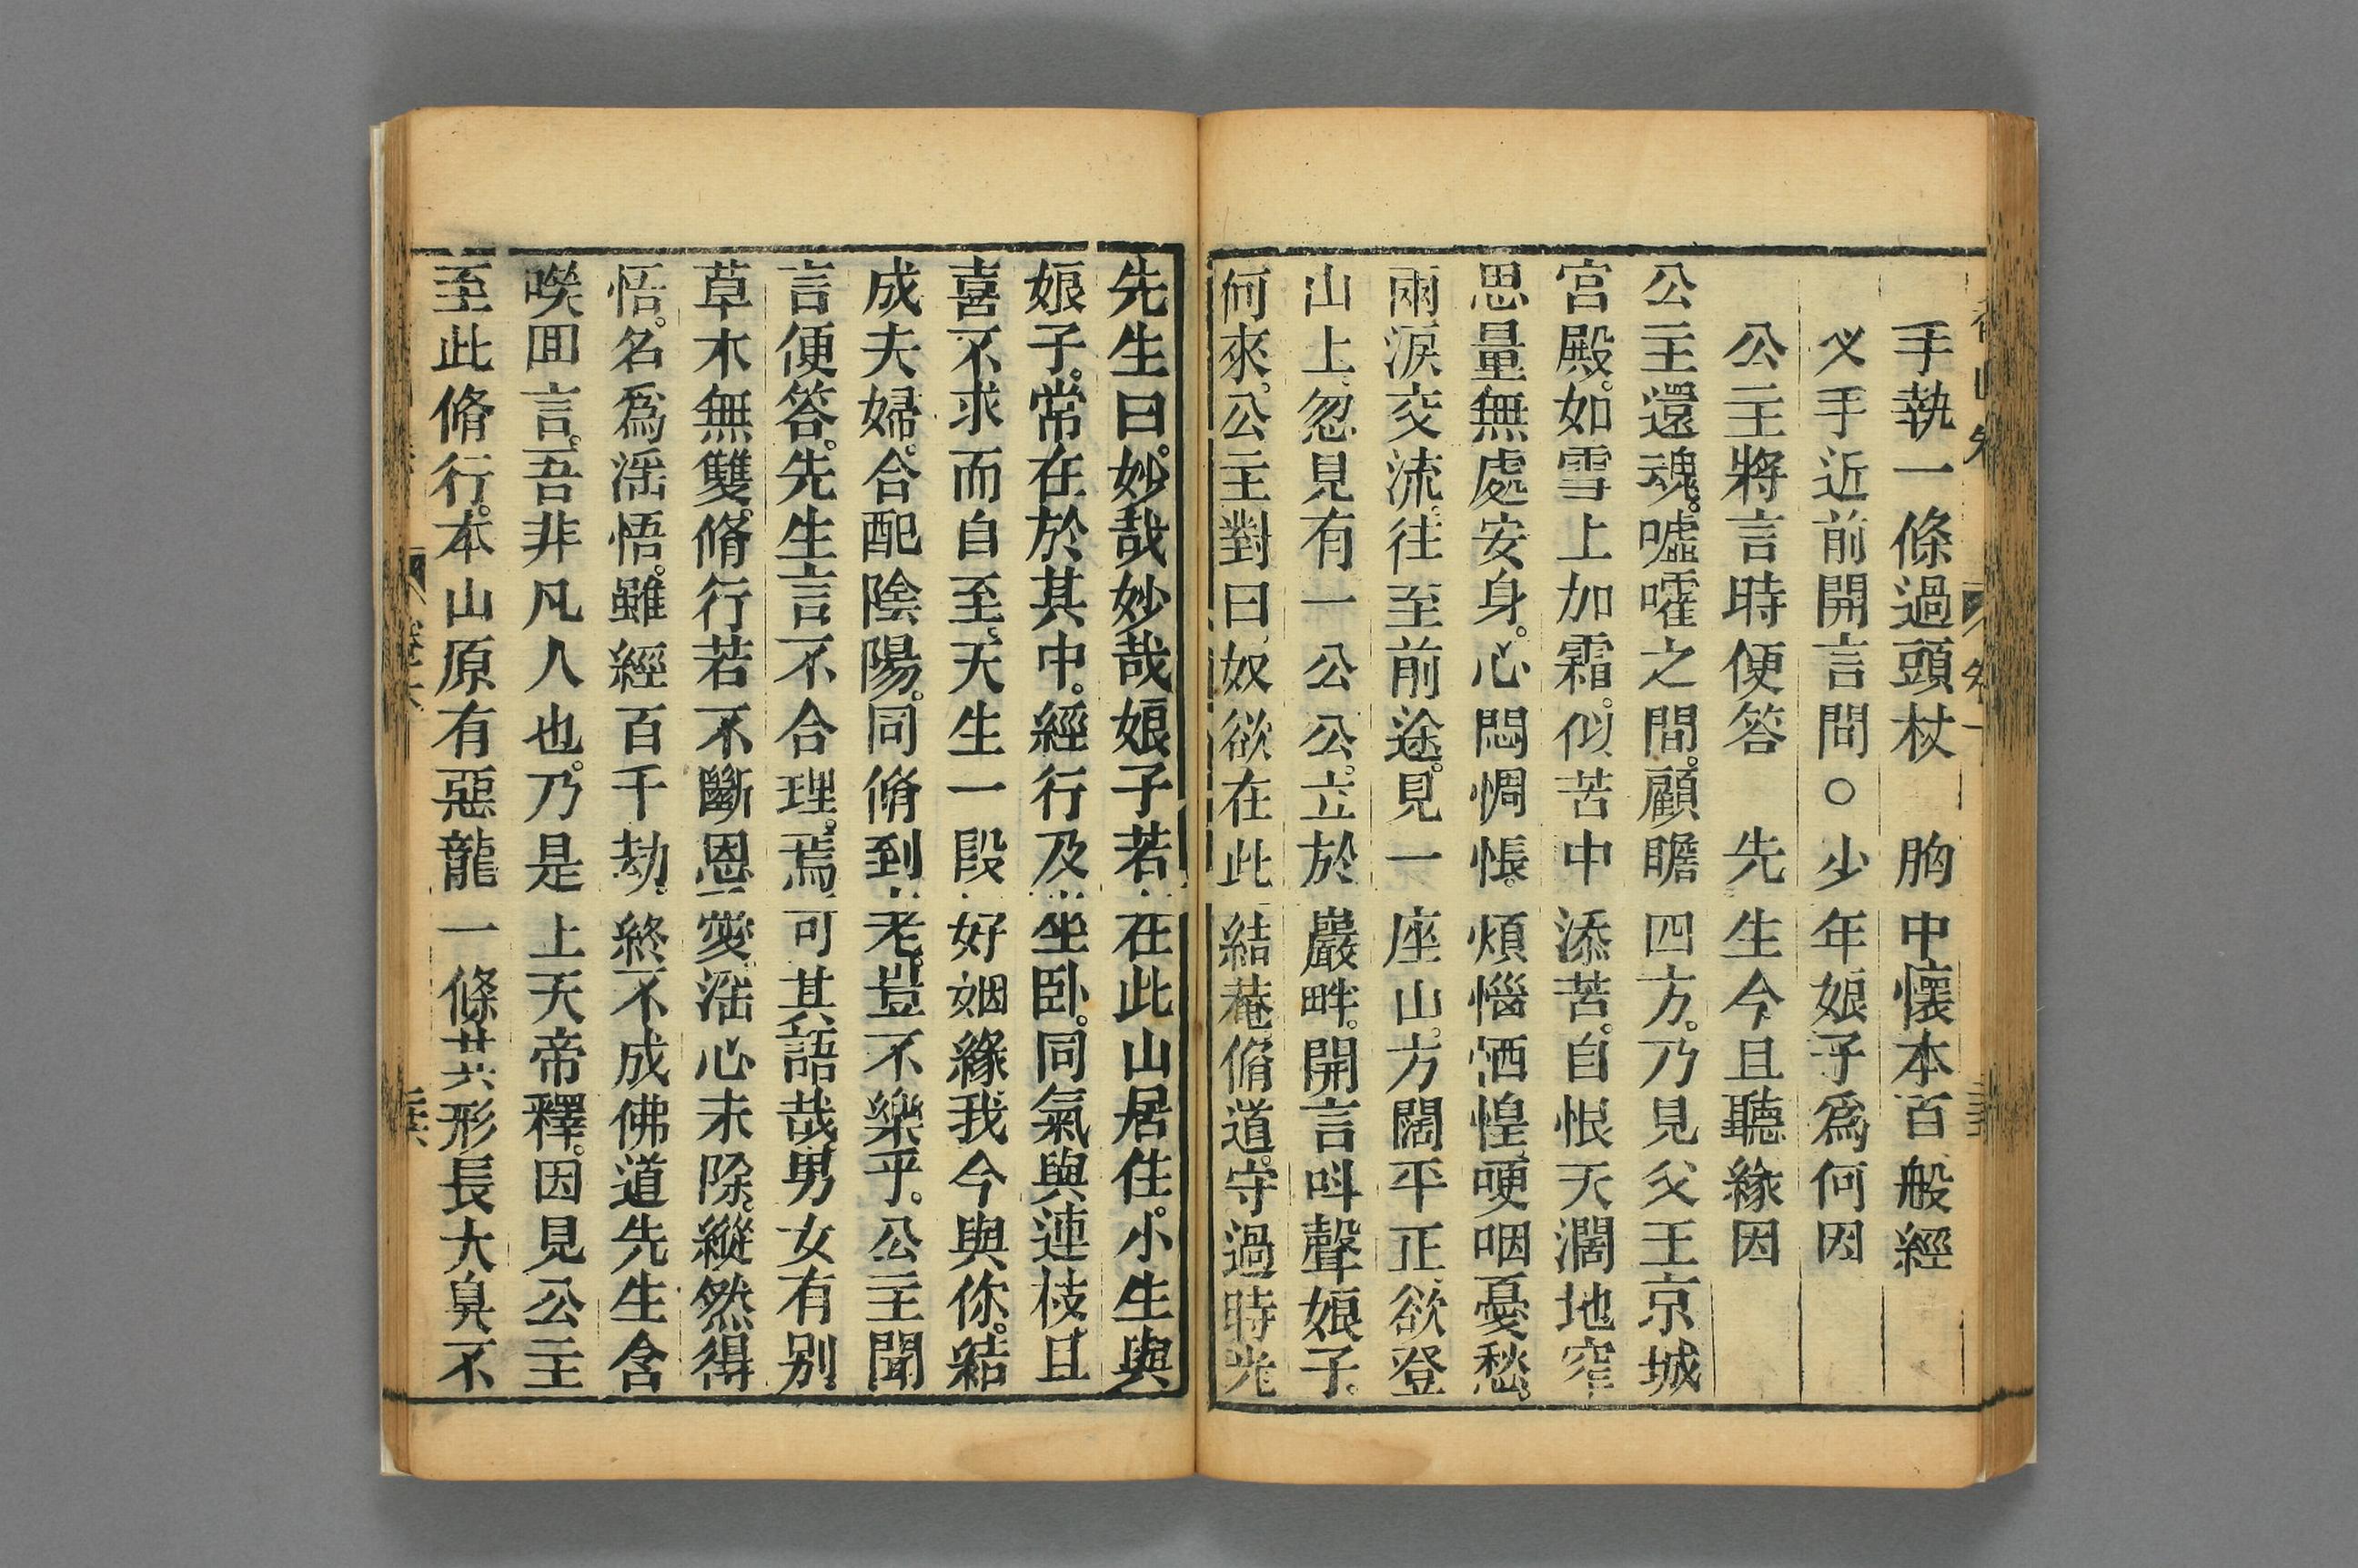 手執一條過頭杖　胸中懷本百般經
义手近前開言問○少年娘子爲何因
公主將言時便答　先生今且聽緣因
公主還魂。噓嚯之間。顧瞻四方。乃見父王京城
宮殿。如雪上加霜。似苦中添苦。自恨天濶地窄
思量無處安身。心悶惆悵。煩惱恓惶。哽咽憂愁。
兩淚交流。往至前途。見一座山。方闊平正。欲登
山上。忽見有一公公。立於巖畔。開言呌聲娘子。
何來。公主對曰。奴欲在此結菴脩道。守過時光
先生曰。妙哉妙哉娘子若在此山居住。小生與
娘子。常在於其中。經行及坐卧。同氣與連枝。且
喜不求而自至。天生一段好姻緣。我今與你。結
成夫婦。合配陰陽。同脩到老。豈不樂乎。公主聞
言便答。先生言不合理。焉可其語哉。男女有别。
草木無雙。脩行若不斷恩愛。滛心未除。縱然得
悟。名爲滛悟。雖經百千劫。終不成佛道先生含
喫囬言。吾非凡人也。乃是上天帝釋。因見公主
至此脩行。本山原有惡龍一條其形長大臭不